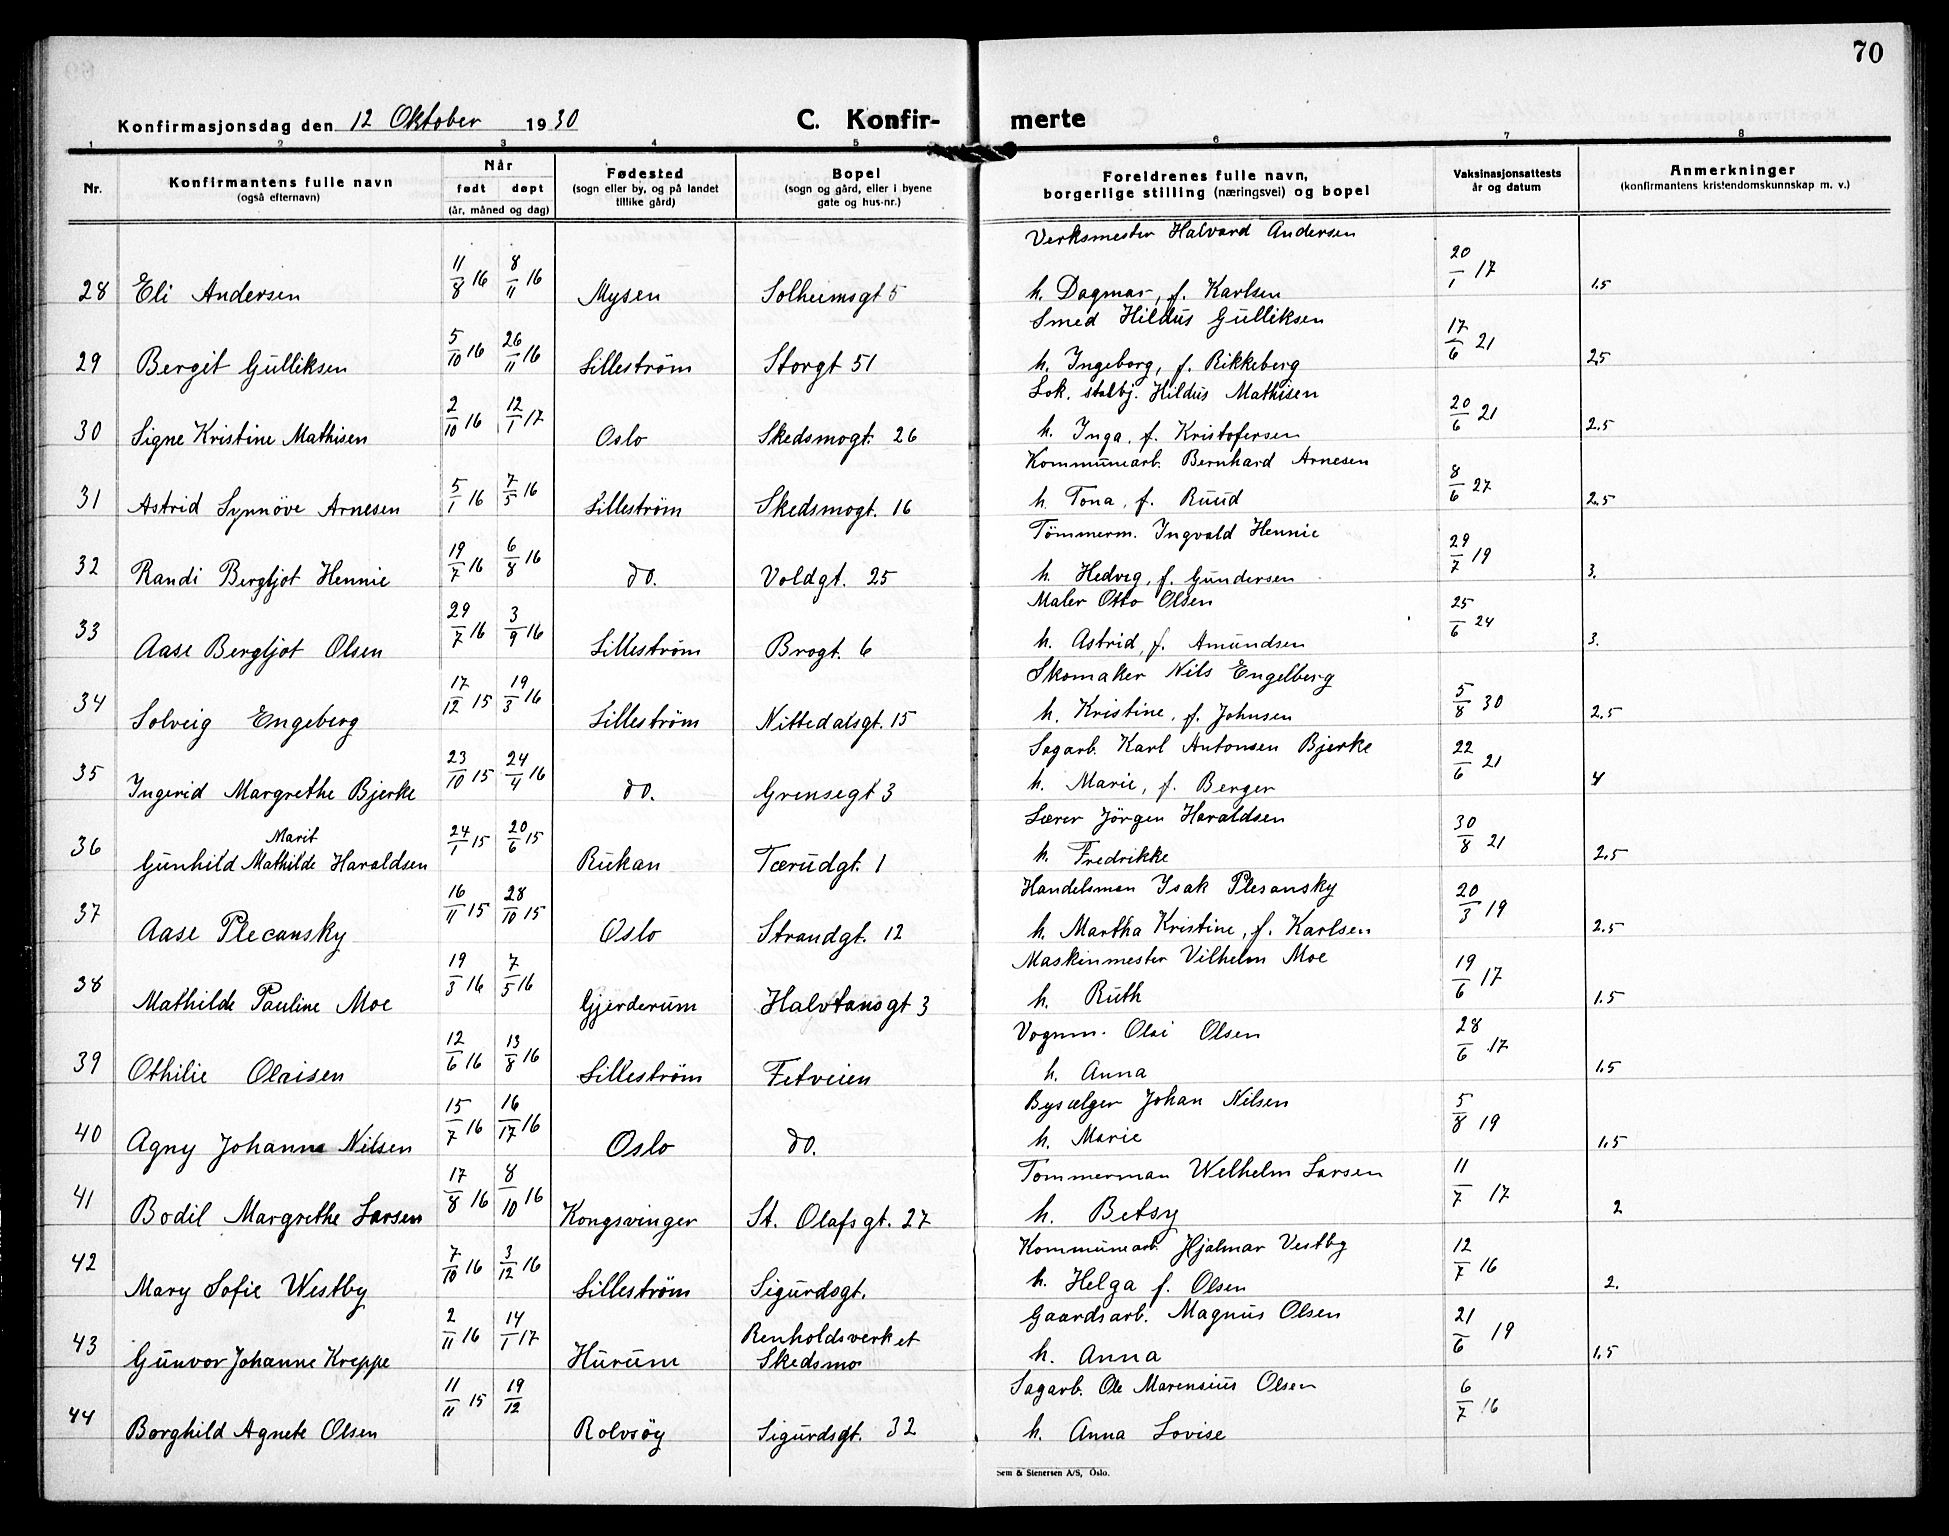 70
Konfirmasjonsdag den 12 Oktober 1930 C. Konfir- merte
1 2 3 4 5 6 7 8
Nr. Konfirmantens fulle navn (også efternavn) Når født døpt (år, måned og dag) Fødested (sogn eller by, og på landet tillike gård) Bopel (sogn og gård, eller i byene gate og hus-nr.) Foreldrenes fulle navn, borgerlige stilling (næringsvei) og bopel Vaksinasjonsattests år og datum Anmerkninger (konfirmantens kristendomskunnskap m. v.)
Verksmester Halvard Andersen
28 Eli Andersen 11/8 16 8/11 16 Mysen Solheimsgt 5 h. Dagmar, f. Karlsen 20/1 17 1.5
Smed Hildus Gulliksen
29 Bergit Gulliksen 5/10 16 26/11 16 Lilleström Storgt 51 h. Ingeborg, f. Rikkeberg 17/6 21 25
Lok. stalbj. Hildus Mathisen
30 Signe Kristine Mathisen 2/10 16 12/1 17 Oslo Skedsmogt. 26 h. Inga, f. Kristofersen 20/6 21 2.5
Kommunearb. Bernhard Arnesen
31 Astrid Synnöve Arnesen 5/1 16 7/5 16 Lilleström Skedsmogt. 16 h. Tona, f. Ruud 8/6 27 2.5
Tömmerm. Ingvald Hennie
32 Randi Bergljot Hennie 19/7 16 6/8 16 do. Voldgt. 25 h. Hedvig, f. Gundersen 29/7 19 3.
Maler Otto Olsen
33 Aase Bergljot Olsen 29/7 16 3/9 16 Lilleström Brogt. 6 h. Astrid, f. Amundsen 25/6 24 3.
Skomaker Nils Engelberg
34 Solveig Engeberg 17/12 15 19/3 16 Lilleström Nittedalsgt. 15 h. Kristine, f. Johnsen 5/8 30 2.5
Sagarb. Karl Antonsen Bjerke
35 Ingerid Margrethe Bjerke 23/10 15 24/4 16 do. Grensegt 3 h. Marie, f. Berger 22/6 21 4
Lærer Jörgen Haraldsen
Marit
36 Gunhild Mathilde Haraldsen 24/1 15 20/6 15 Rukan Tærudgt. 1 h. Fredrikke 30/8 21 2.5
Handelsman Isak Plesansky
37 Aase Plecansky 16/11 15 28/10 15 Oslo Strandgt. 12 h. Martha Kristine, f. Karlsen 20/3 19 2.5
Maskinmester Vilhelm Moe
38 Mathilde Pauline Moe 19/3 16 7/5 16 Gjerderum Halvdansgt 3 h. Ruth 19/6 17 1.5
Vognm. Olai Olsen
39 Othilie Olaisen 12/6 16 13/8 16 Lilleström Fetveien h. Anna 28/6 17 1.5
Bysælger Johan Nilsen
40 Agny Johanne Nilsen 15/7 16 16/17 16 Oslo do. h. Marie 5/8 19 1.5
Tommerman Welhelm Larsen
41 Bodil Margrethe Larsen 17/8 16 8/10 16 Kongsvinger St. Olafsgt. 27 h. Betsy 11/7 17 2
Kommunearb. Hjalmar Vestby
42 Mary Sofie Westby 7/10 16 3/12 16 Lilleström Sigurdsgt. h. Helga f. Olsen 12/7 16 2.
Gaardsarb. Magnus Olsen
43 Gunvor Johanne Kreppe 2/11 16 14/1 17 Hurum Renholdsverket Skedsmo h. Anna 21/6 19 1.5
Sagarb. Ole Marensius Olsen
44 Borghild Agnete Olsen 11/11 15 19/12 Rolvsöy Sigurdsgt. 32 h. Anna Lovise 6/7 16
Sem & Stenersen A/S, Oslo.